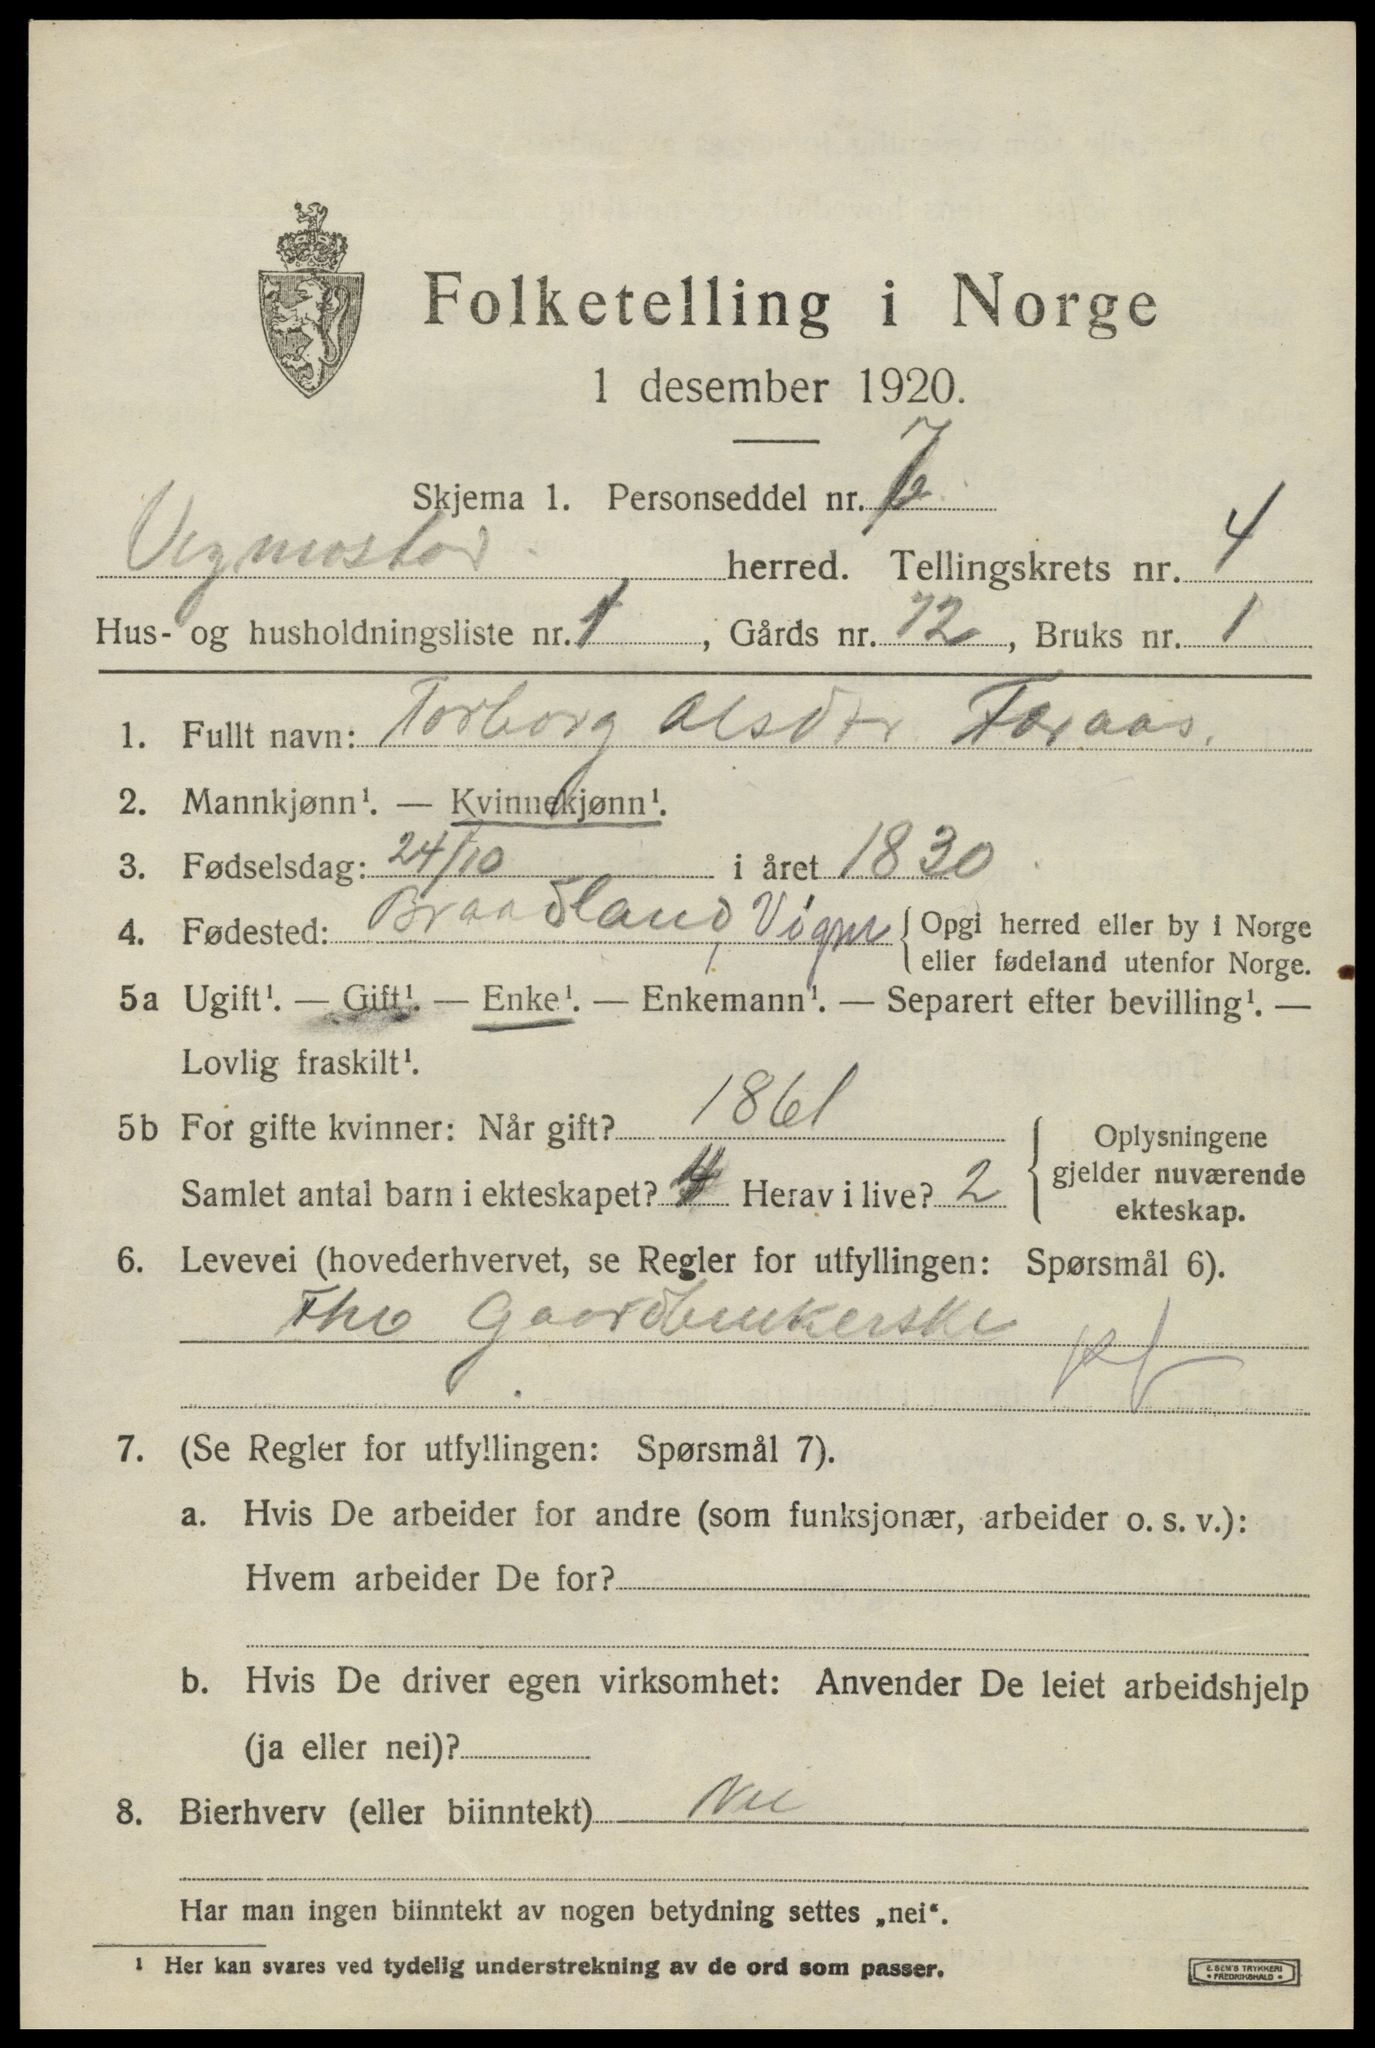 Folketelling i Norge
1 desember 1920.
Skjema 1. Personseddel nr. 7
Vegmostad herred. Tellingskrets nr. 4
Hus- og husholdningsliste nr. 1, Gårds nr. 72, Bruks nr. 1
1. Fullt navn: Torborg Olsdtr Foraas.
2. Mannkjønn¹. — Kvinnekjønn¹.
3. Fødselsdag: 24/10 i året 1830
4. Fødested: Braadland, Vigm { Opgi herred eller by i Norge
eller fødeland utenfor Norge.
5a Ugift¹. — Gift¹. — Enke¹. — Enkemann¹. — Separert efter bevilling¹. —
Lovlig fraskilt¹.
5b For gifte kvinner: Når gift? 1861
Samlet antal barn i ekteskapet? 4 Herav i live? 2
Oplysningene
gjelder nuværende
ekteskap.
6. Levevei (hovederhvervet, se Regler for utfyllingen: Spørsmål 6).
Fhv Gaardbrukerske
7. (Se Regler for utfyllingen: Spørsmål 7).
a. Hvis De arbeider for andre (som funksjonær, arbeider o. s. v.):
Hvem arbeider De for?
b. Hvis De driver egen virksomhet: Anvender De leiet arbeidshjelp
(ja eller nei)?
8. Bierhverv (eller biinntekt) Nei
Har man ingen biinntekt av nogen betydning settes „nei“.
¹ Her kan svares ved tydelig understrekning av de ord som passer.
E SEM'S TRYKKERI
• FREDRIKSHALD •